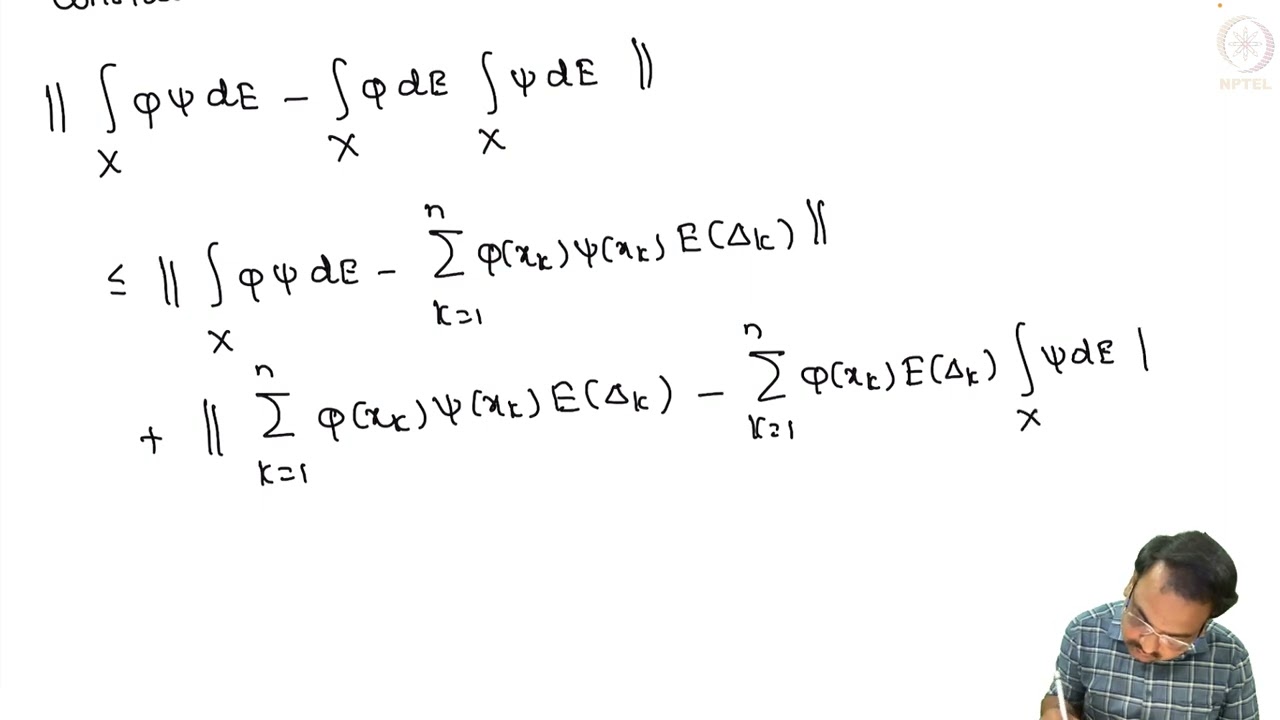 NPTEL
‖ ∫_X φψ dE − ∫_X φ dE ∫_X ψ dE ‖
≤ ‖ ∫_X φψ dE − ∑_{k=1}^{n} φ(x_k) ψ(x_k) E(Δ_k) ‖
+ ‖ ∑_{k=1}^{n} φ(x_k) ψ(x_k) E(Δ_k) − ∑_{k=1}^{n} φ(x_k) E(Δ_k) ∫_X ψ dE |